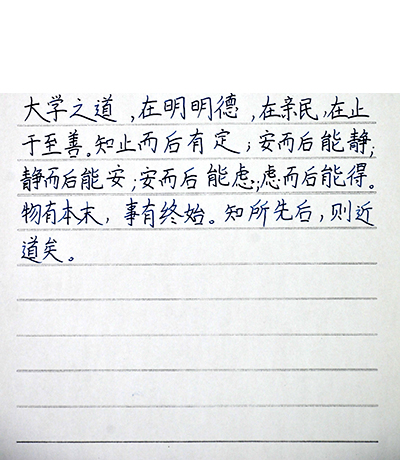 大学之道,在明明德,在亲民,在止
于至善。知止而后有定;安而后能静;
静而后能安;安而后能虑;虑而后能得。
物有本末,事有终始。知所先后,则近
道矣。